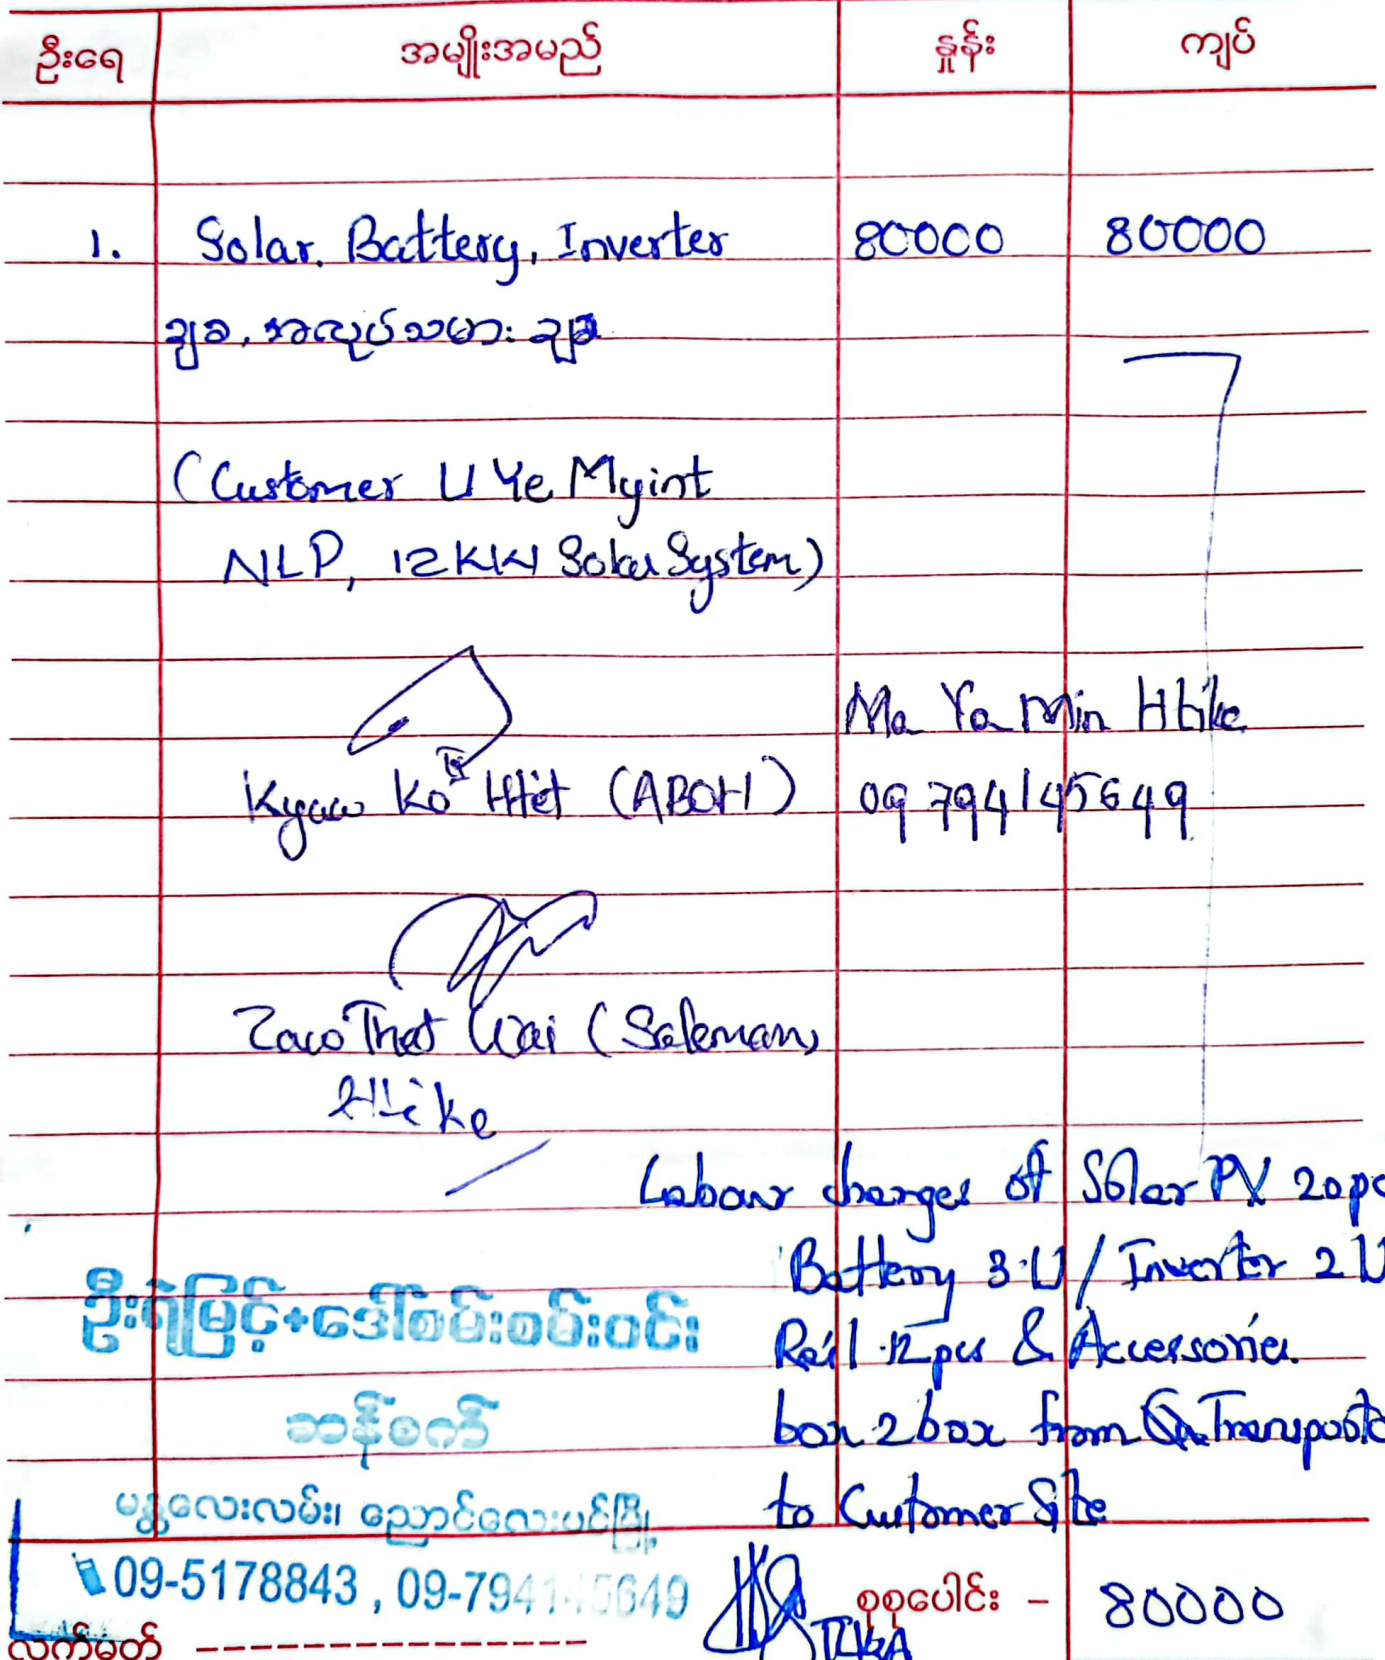 ဦးရေ အမျိုးအမည် နှုန်း ကျပ်
1. Solar. Battery, Inverter 80000 80000
ချခ, အလုပ်သမား ချခ
(Customer U Ye Myint
NLP, 12KW Solar System)
Ma Ya Min Htike
Kyaw Ko Htet (ABOH) 09 794145649
Zaw Thet Wai (Saleman)
Htike
Labour charges of Solar PV 20pc
Battery 3 U / Inverter 2 U
Rail 12 pcs & Accessories.
box 2 box from Transport
to Customer Site
ဦးရဲမြင့်+ဒေါ်စမ်းစမ်းဝင်း
ဆန်စက်
မန္တလေးလမ်း၊ ညောင်လေးပင်မြို့
09-5178843 , 09-794145649
စုစုပေါင်း - 80000
လက်မှတ်